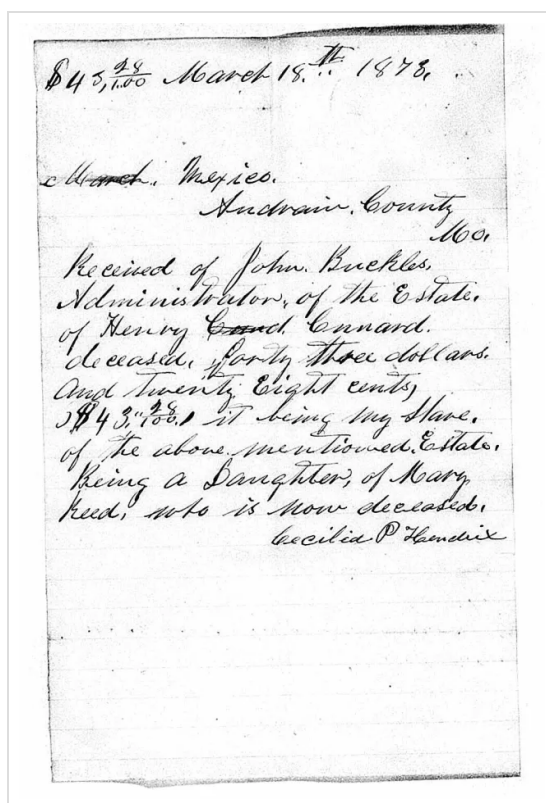 $43,28/100 March 18.th 1873.
March. Mexico.
Andrain. County
Mo.
Received of John. Buckles.
Administrator, of the Estate.
of Henry Cunard.
deceased, forty three dollars.
And twenty Eight cents,
$43,"28/100. it being my Share.
of the above mentioned. Estate.
Being a Daughter, of Mary
Reed, who is now deceased.
Cecilia P Hendrix